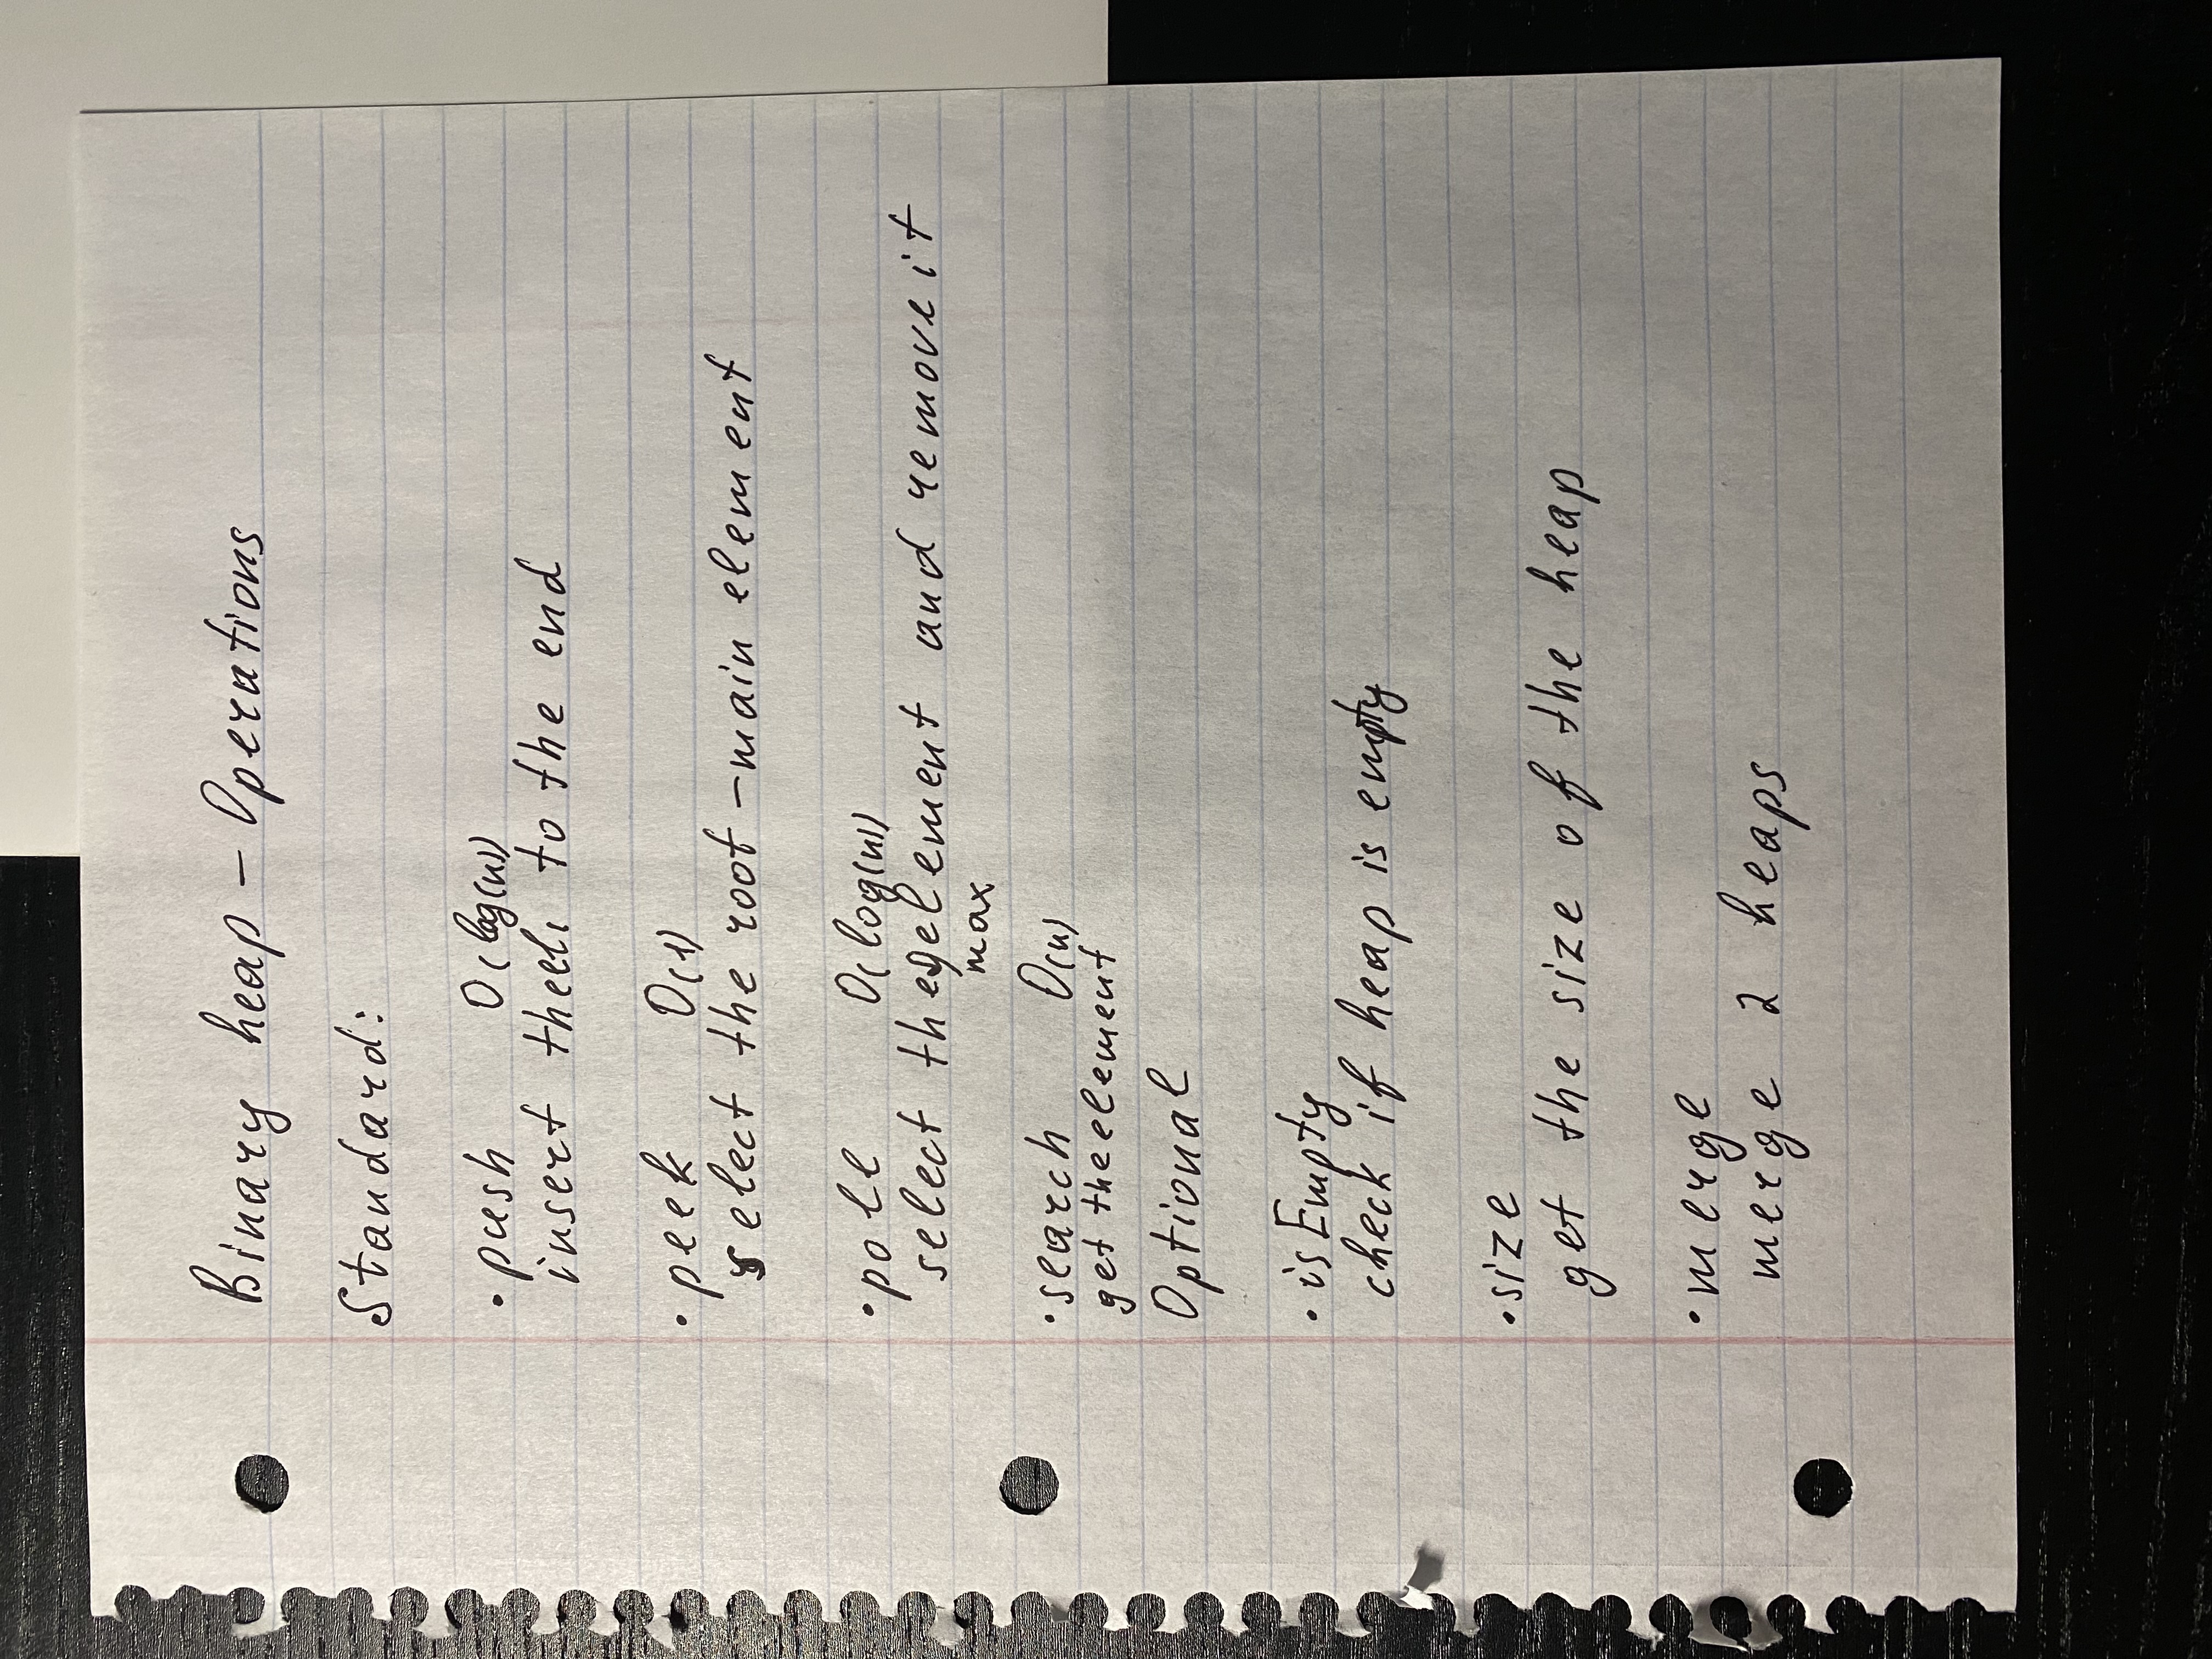 Binary heap - Operations
Standard:
• push O(log(n))
insert the el. to the end
• peek O(1)
select the root - main element
• poll O(log(n))
select the element and remove it
max
• search O(n)
get the element
Optional
• isEmpty
check if heap is empty
• size
get the size of the heap
• merge
merge 2 heaps